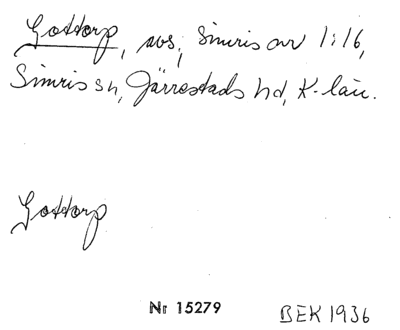 Gottorp, avs, Simris nr 1:16,
Simris sn, Järrestads hd, K-län.
Gottorp
Nr 15279
BEK 1936